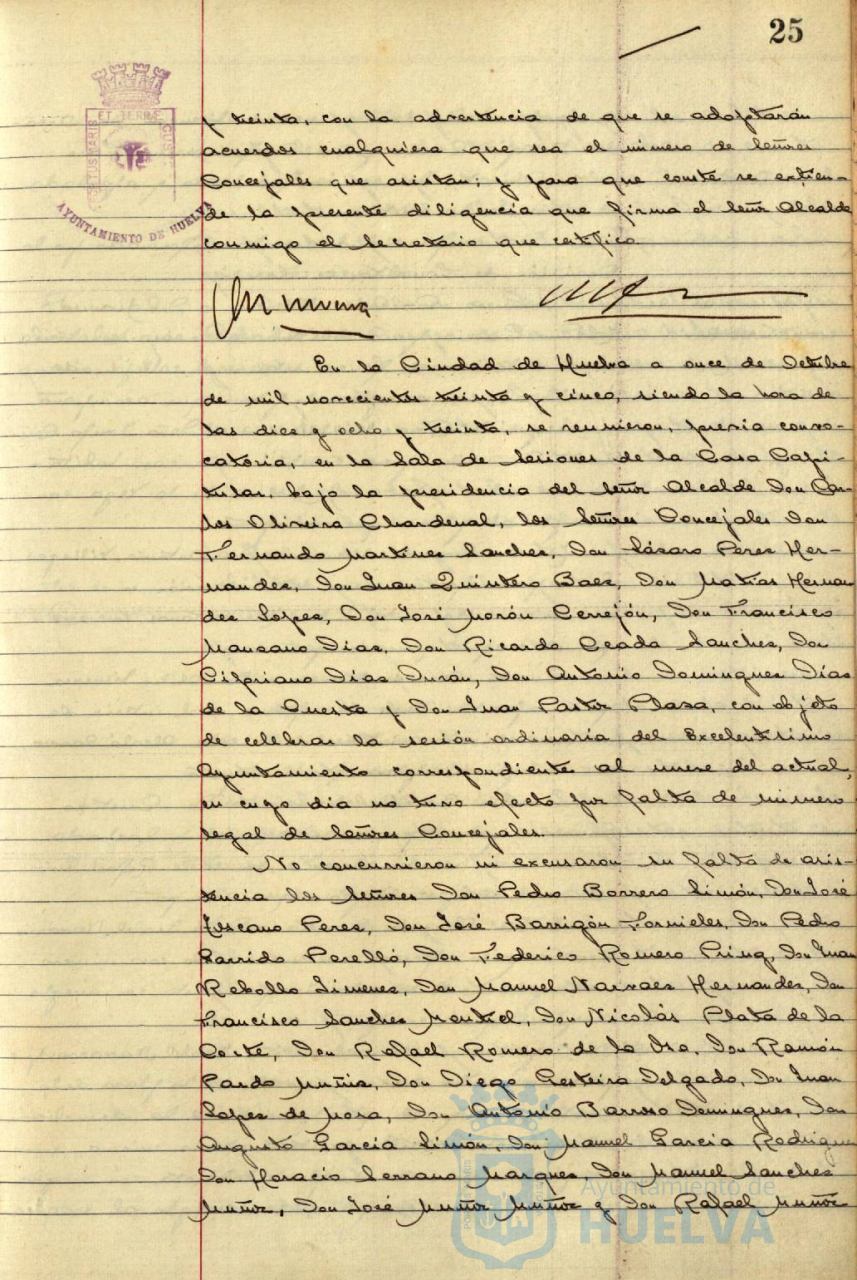 25
PORTUS MARIS ET TERRAE CUSTODIA
AYUNTAMIENTO DE HUELVA
y treinta, con la advertencia de que se adoptarán
acuerdos cualquiera que sea el número de Señores
Concejales que asistan; y para que conste se extien-
de la presente diligencia que firma el Señor Alcalde
conmigo el Secretario que certifico
En la Ciudad de Huelva a once de Octubre
de mil novecientos treinta y cinco, siendo la hora de
las diez y ocho y treinta, se reunieron, previa convo-
catoria, en la Sala de Sesiones de la Casa Capi-
tular, bajo la presidencia del Señor Alcalde Don Car-
los Oliveira Chardenal, los Señores Concejales Don
Fernando Martinez Sanchez, Don Lázaro Perez Her-
nandez, Don Juan Quintero Baez, Don Matias Hernan
dez Lopez, Don José Morón Cerrejón, Don Francisco
Manzano Dias, Don Ricardo Ceada Sanchez, Don
Cipriano Dias Durán, Don Antonio Dominguez Dias
de la Cuesta y Don Juan Pastor Plaza, con objeto
de celebrar la sesión ordinaria del Excelentisimo
Ayuntamiento correspondiente al nueve del actual,
en cuyo dia no tuvo efecto por falta de número
legal de Señores Concejales.
No concurrieron ni excusaron su falta de asis-
tencia los Señores Don Pedro Borrero Limón, Don José
Tiscano Perez, Don José Barrigón Fornieles, Don Pedro
Garrido Perelló, Don Federico Romero Pring, Don Juan
Rebollo Jimenez, Don Manuel Narvaez Hernandez, Don
Francisco Sanchez Montiel, Don Nicolás Plata de la
Corte, Don Rafael Romero de la Osa, Don Ramón
Pardo Muñiz, Don Diego Gesteira Delgado, Don Juan
Lopez de Mora, Don Antonio Barroso Dominguez, Don
Augusto Garcia Limón, Don Manuel Garcia Rodriguez
Don Horacio Serrano Marquez, Don Manuel Sanchez
Muñoz, Don José Muñoz Muñoz y Don Rafael Muñoz
Ayuntamiento de
HUELVA